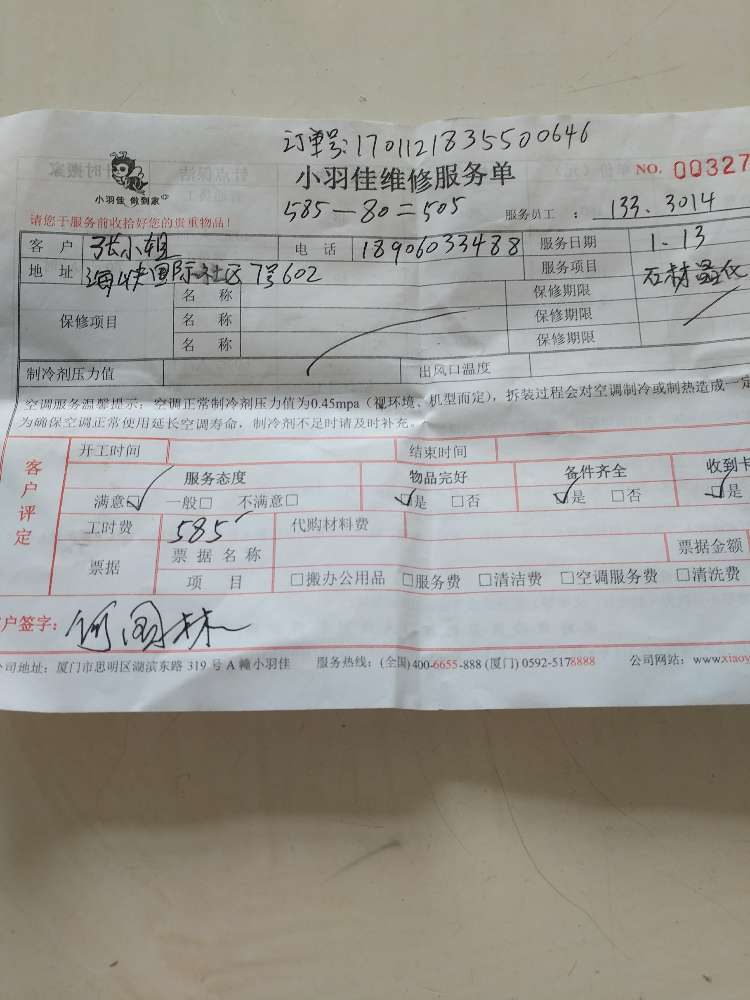 订单号:1701121835500646
小羽佳 做到家
小羽佳维修服务单
NO. 00327
请您于服务前收拾好您的贵重物品!
585-80=505
服务员工 : 133. 3014
客 户 张小姐 电 话 18906033488 服务日期 1.13
地 址 海峡国际社区7号602 服务项目 石材晶化
保修项目 名 称 保修期限
名 称 保修期限
名 称 保修期限
制冷剂压力值 出风口温度
空调服务温馨提示: 空调正常制冷剂压力值为0.45mpa (视环境、机型而定), 拆装过程会对空调制冷或制热造成一定
为确保空调正常使用延长空调寿命, 制冷剂不足时请及时补充。
客户评定
开工时间 结束时间
服务态度 物品完好 备件齐全 收到卡
满意☑ 一般□ 不满意□ ☑是 □否 ☑是 □否 ☑是
工时费 585 代购材料费
票据 票 据 名 称 票据金额
项 目 □搬办公用品 □服务费 □清洁费 □空调服务费 □清洗费
户签字:
司地址: 厦门市思明区湖滨东路 319 号 A 幢小羽佳 服务热线: (全国)400-6655-888 (厦门) 0592-5178888 公司网站: www.xiaoy